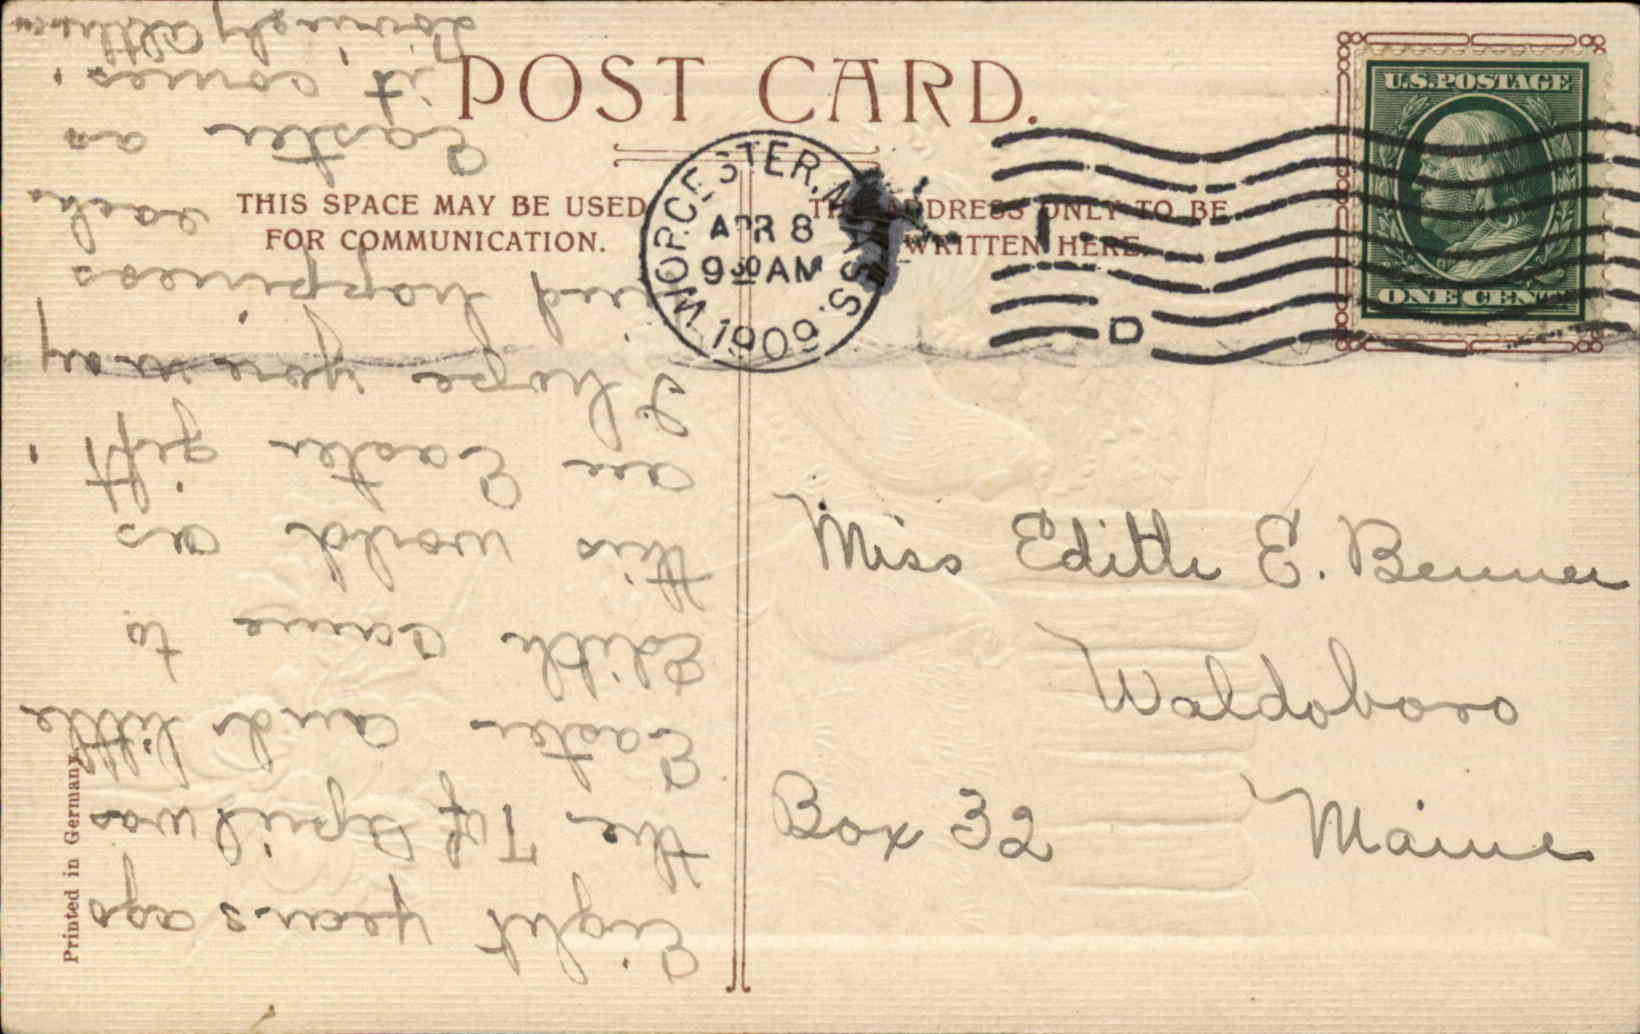 POST CARD.
THIS SPACE MAY BE USED
FOR COMMUNICATION.
ADDRESS ONLY TO BE
WRITTEN HERE.
U.S. POSTAGE
ONE CENT
WORCESTER, MASS.
APR 8
9 30 AM
1909
D
Miss Edith E. Benner
Waldoboro
Box 32 Maine
Eight years ago
the 7 of April was
Easter and little
Edith came to
this world as
an Easter gift.
I hope you may
find happiness
each
Easter as
it comes.
Lovingly
Printed in Germany